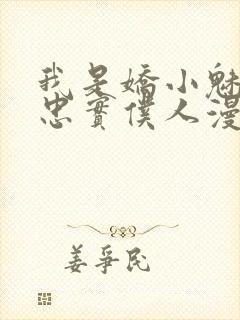 我是嬌小魅
忠實僕人漫
姜爭民